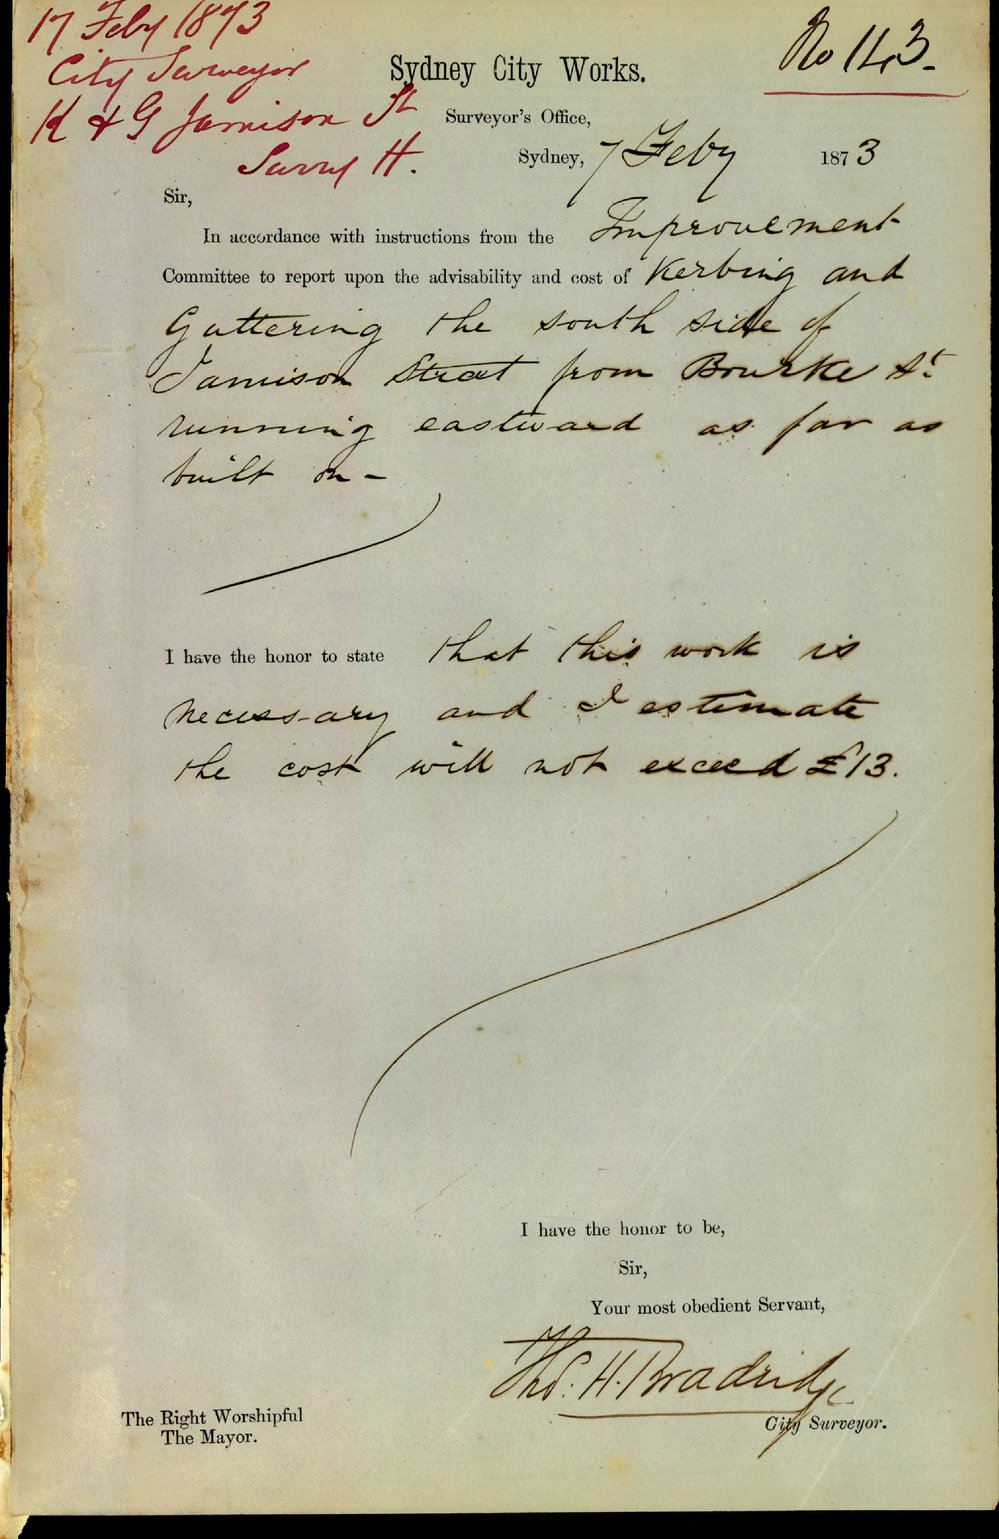 17 Feby 1873
City Surveyor
K & G Jamison St
Surry H.
No 143.
Sydney City Works.
Surveyor's Office,
Sydney, 7 Feby 1873
Sir,
In accordance with instructions from the Improvement
Committee to report upon the advisability and cost of Kerbing and
Guttering the south side of
Jamison Street from Bourke St
running eastward as far as
built on -
I have the honor to state that this work is
necessary and I estimate
the cost will not exceed £13.
I have the honor to be,
Sir,
Your most obedient Servant,
Thos. H. Bradridge
City Surveyor.
The Right Worshipful
The Mayor.